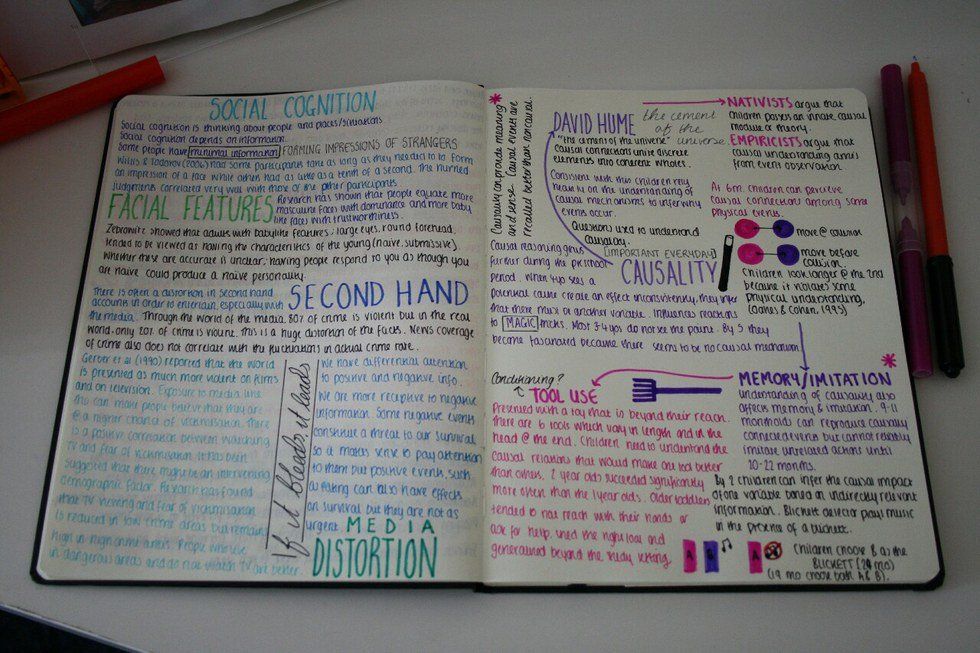 SOCIAL COGNITION
Social cognition is thinking about people and places/situations
Social cognition depends on information.
Some people have minimal information FORMING IMPRESSIONS OF STRANGERS
Willis & Todorov (2006) had some participants take as long as they needed to to form
an impression of a face while others had as little as a tenth of a second. The hurried
judgments correlated very well with those of the other participants.
FACIAL FEATURES
Research has shown that people equate more
masculine faces with dominance and more baby
like faces with trustworthiness.
Zebrowitz showed that adults with babylike features; large eyes, round forehead,
tended to be viewed as having the characteristics of the young (naive, submissive).
Whether these are accurate is unclear. having people respond to you as though you
are naive could produce a naive personality.
There is often a distortion in second hand
accounts in order to entertain, especially with
the media.
SECOND HAND
Through the world of the media, 80% of crime is violent but in the real
world, only 20% of crime is violent. This is a huge distortion of the facts. News coverage
of crime also does not correlate with the fluctuations in actual crime rate.
Gerber et al (1990) reported that the world
is presented as much more violent on films
and on television. Exposure to media like
this can make people believe that they are
@ a higher chance of victimisation. There
is a positive correlation between watching
TV and fear of victimisation. It has been
suggested that there might be an intervening
demographic factor. Research has found
that TV viewing and fear of victimisation
is reduced in low crime areas but remains
high in high crime areas. People who live
in dangerous areas and do not watch TV are better.
If it bleads, it leads
We have differential attention
to positive and negative info.
We are more receptive to negative
information. Some negative events
constitute a threat to our survival
so it makes sense to pay attention
to them but positive events such
as eating can also have effects
on survival but they are not as
urgent
MEDIA
DISTORTION
* Causality can provide meaning
and sense. Causal events are
recalled better than noncausal.
DAVID HUME
the cement
of the
universe
"the cement of the universe"
Causal connections unite discrete
elements into coherent wholes.
Consistent with this children rely
heavily on the understanding of
causal mechanisms to infer why
events occur.
Questions used to understand
causality.
[IMPORTANT EVERYDAY]
CAUSALITY
Causal reasoning grows
further during the preschool
period. When 4yo see a
potential cause create an effect inconsistently, they infer
that there must be another variable. Influences reactions
to MAGIC tricks. Most 3-4 yos do not see the point. By 5 they
become fascinated because there seems to be no causal mechanism
NATIVISTS argue that
children possess an innate causal
module or theory.
EMPIRICISTS argue that
causal understanding arises
from event observation.
At 6m, children can perceive
causal connections among some
physical events.
move @ collision
move before
collision.
Children look longer @ the 2nd
because it violates some
physical understanding.
(Oakes & Cohen, 1995)
Conditioning?
TOOL USE
Presented with a toy that is beyond their reach.
there are 6 tools which vary in length and in the
head @ the end. Children need to understand the
causal relations that would make one tool better
than others. 2 year olds succeeded significantly
more often than the 1 year olds. Older toddlers
tended to not reach with their hands or
ask for help, used the right tool and
generalised beyond the study setting.
*
MEMORY/IMITATION
understanding of causality also
affects memory & imitation. 9-11
month olds can reproduce causally
connected events but cannot reliably
imitate unrelated actions until
20-22 months.
By 2 children can infer the causal impact
of one variable based on indirectly relevant
information. Blickett detector plays music
in the presence of a blickett.
A B
A
Children choose B as the
BLICKETT (24 mo)
(19 mo choose both A & B).